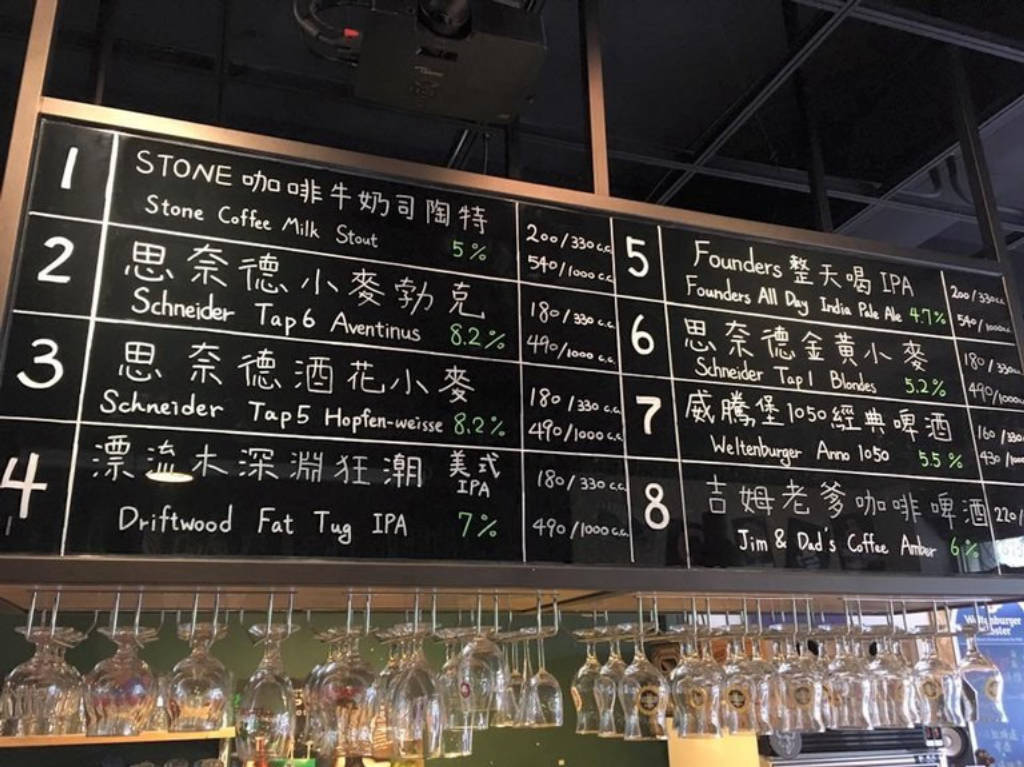 1
STONE 咖啡牛奶司陶特
Stone Coffee Milk Stout 5%
200/330 c.c.
540/1000 c.c.
2
思奈德小麥勃克
Schneider Tap6 Aventinus 8.2%
180/330 c.c.
490/1000 c.c.
3
思奈德酒花小麥
Schneider Tap5 Hopfen-weisse 8.2%
180/330 c.c.
490/1000 c.c.
4
漂流木深淵狂潮 美式 IPA
Driftwood Fat Tug IPA 7%
180/330 c.c.
490/1000 c.c.
5
Founders 整天喝 IPA
Founders All Day India Pale Ale 4.7%
200/330 c.c.
540/1000
6
思奈德金黃小麥
Schneider Tap1 Blondes 5.2%
180/330
490/1000
7
威騰堡1050經典啤酒
Weltenburger Anno 1050 5.5%
160/330
430/1000
8
吉姆老爹咖啡啤酒
Jim & Dad's Coffee Amber 6%
220/